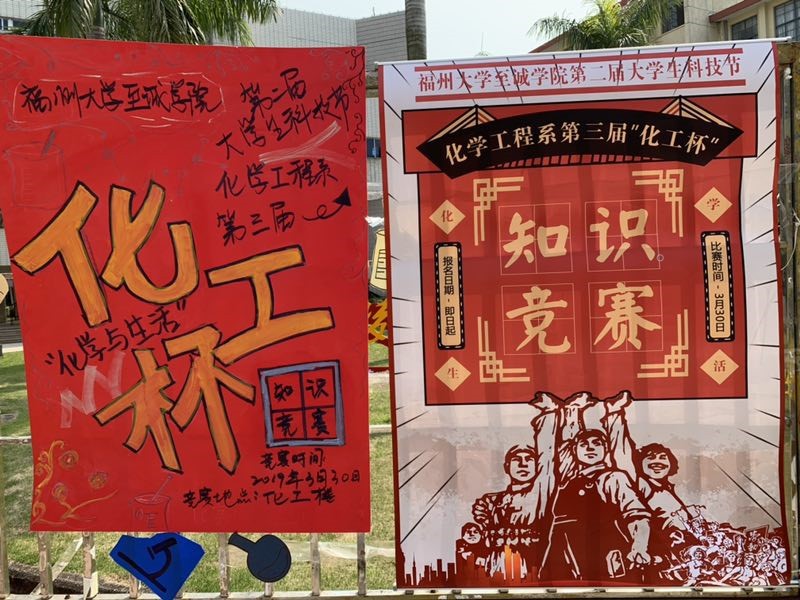 福州大学至诚学院
第二届
大学生科技节
化学工程系
第三届
化工
杯
"化学与生活"
知识
竞赛
竞赛时间:
2019年3月30日
竞赛地点:化工楼
福州大学至诚学院第二届大学生科技节
化学工程系第三届"化工杯"
化
学
知识
竞赛
报名日期-即日起
比赛时间-3月30日
生
活